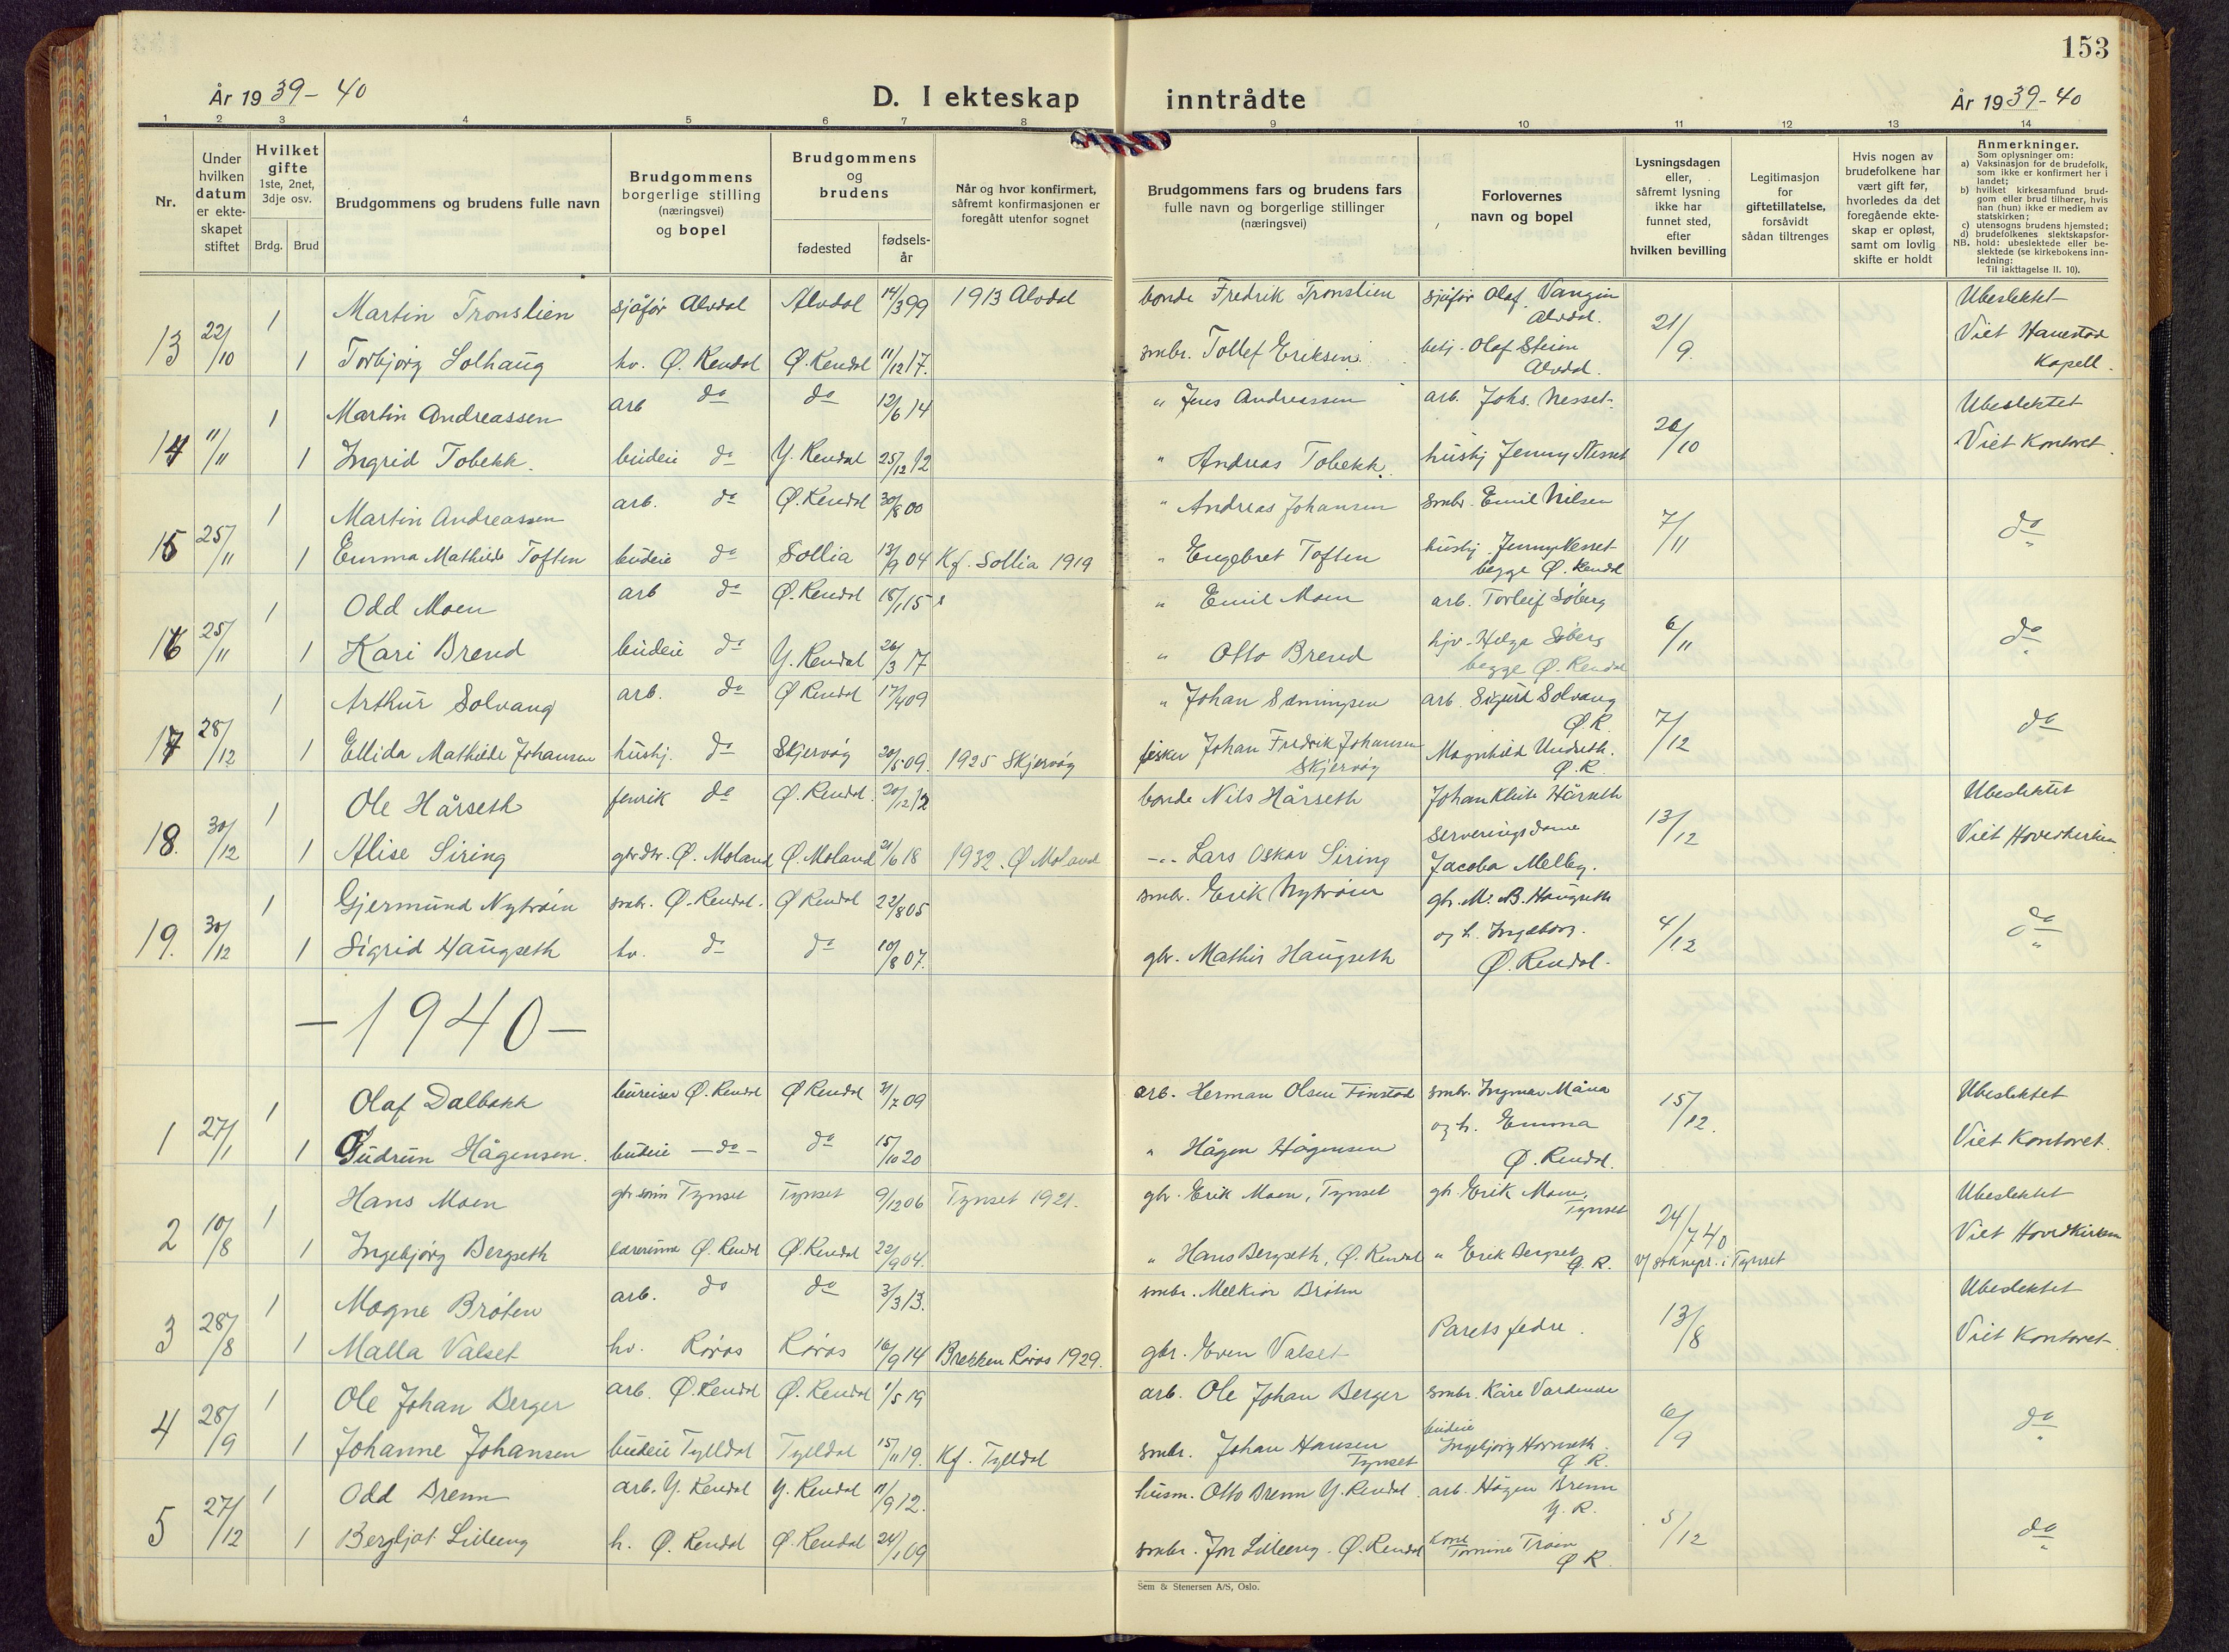 153
År 19 39-40
D. I ekteskap inntrådte
År 19 39-40
1 2 3 4 5 6 7 8 9 10 11 12 13 14
Nr.
Under hvilken datum er ekte-skapet stiftet
Hvilket gifte 1ste, 2net, 3dje osv.
Brdg. Brud
Brudgommens og brudens fulle navn
Brudgommens borgerlige stilling (næringsvei) og bopel
Brudgommens og brudens
fødested
fødsels-år
Når og hvor konfirmert, såfremt konfirmasjonen er foregått utenfor sognet
Brudgommens fars og brudens fars fulle navn og borgerlige stillinger (næringsvei)
Forlovernes navn og bopel
Lysningsdagen eller, såfremt lysning ikke har funnet sted, efter hvilken bevilling
Legitimasjon for giftetillatelse, forsåvidt sådan tiltrenges
Hvis nogen av brudefolkene har vært gift før, hvorledes da det foregående ekte-skap er opløst, samt om lovlig skifte er holdt
Anmerkninger.
Som oplysninger om:
a) Vaksinasjon for de brudefolk, som ikke er konfirmert her i landet;
b) hvilket kirkesamfund brud-gom eller brud tilhører, hvis han (hun) ikke er medlem av statskirken;
c) utensogns brudens hjemsted;
d) brudefolkenes slektskapsfor-
NB. hold: ubeslektede eller be-slektede (se kirkebokens inn-ledning: Til iakttagelse II. 10).
13 22/10 1 Martin Tronslien sjåfør Alvdal Alvdal 14/3 99 1913 Alvdal bonde Fredrik Tronslien sjåfør Olaf Vangen Alvdal. 21/9. Ubeslektet
1 Torbjørg Solhaug hv. Ø. Rendal Ø. Rendal 11/12 17. smbr. Tollef Eriksen betj. Olaf Steien Alvdal. Viet Hanestad Kapell.
14 11/11 1 Martin Andreassen arb do do 12/6 14 " Jens Andreassen arb. Johs. Nesset. 26/10 Ubeslektet
1 Ingrid Tobekk. budeie do Y. Rendal 25/12 12 " Andreas Tobekk. hushj Jenny Nesset Viet Kontoret.
15 25/11 1 Martin Andreassen arb. do Ø. Rendal 30/8 00 " Andreas Johansen smbr. Emil Nilsen 7/11 do
1 Emma Mathilde Toften budeie do Sollia 13/9 04 Kf. Sollia 1919 " Engebret Toften hushj. Jenny Nesset begge Ø. Rendal
16 25/11 1 Odd Moen arb do Ø. Rendal 18/1 15 " Emil Moen arb. Torleif Søberg 6/11 do
1 Kari Brend budeie do Y. Rendal 26/3 17 " Otto Brend hjv. Helga Søberg begge Ø. Rendal
17 28/12 1 Arthur Solvang arb. do Ø Rendal 17/4 09 " Johan Sæmingsen arb. Sigurd Solvang Ø R. 7/12 do
1 Ellida Mathilde Johansen hushj. do Skjervøy 20/5 09. 1925 Skjervøy fisker Johan Fredrik Johansen Skjervøy Magnhild Undseth. Ø. R.
18. 30/12 1 Ole Hårseth fenrik do Ø. Rendal. 20/12 12 bonde Nils Hårseth Johan Hårseth 13/12 Ubeslektet
1 Alise Siring gbrdtr. Ø. Moland Ø. Moland 21/6 18 1932. Ø Moland -"- Lars Oskar Siring serveringsdame Jacoba Melby. Viet Hovedkirken
19. 30/12 1 Gjermund Nytrøen smbr. Ø. Rendal. Ø Rendal 22/8 05 smbr. Erik Nytrøen gbr. M. B. Haugseth 4/12 do
1 Sigrid Haugseth hv. do do 10/8 07. gbr. Mathis Haugseth og h. Ingeborg. Ø. Rendal.
– 1940 –
1 27/1 1 Olaf Dalbakk bureiser Ø. Rendal Ø Rendal 31/7 09 arb. Herman Olsen Finstad smbr. Ingmar Måna 15/12. Ubeslektet
1 Gudrun Hågensen. budeie -do- do 15/10 20 " Hågen Hågensen og h. Emma Ø. Rendal. Viet Kontoret.
2 10/8 1 Hans Moen gbr sønn Tynset Tynset 9/12 06 Tynset 1921. gbr. Erik Moen, Tynset gbr. Erik Moen, Tynset 24/7 40 Ubeslektet
1 Ingebjørg Bergseth lærerinne Ø. Rendal Ø. Rendal 22/9 04. " Hans Bergseth, Ø. Rendal " Erik Bergset Ø. R. v/ soknepr. i Tynset Viet Hovedkirken
3 28/8 1 Magne Bråten arb. do do 3/3 13. smbr. Melkior Bråten Parets fedre. 13/8 Ubeslektet
1 Malla Valset hv. Røros Røros 16/9 14 Brekken Røros 1929. gbr. Even Valset Viet Kontoret
4 28/9 1 Ole Johan Berger arb. Ø. Rendal Ø. Rendal 1/5 19 arb. Ole Johan Berger smbr. Kåre Vardende 6/9 do
1 Johanne Johansen budeie Tylldal Tylldal 15/11 19. Kf. Tylldal smbr. Johan Hansen Tynset budeie Ingebjørg Hornseth. Ø R.
5 27/12 1 Odd Brenn arb. Y. Rendal Y. Rendal 11/9 12. husm. Otto Brenn Y. Rendal. arb. Hågen Brenn Y. R. 5/12 do
1 Bergljot Lilleeng h. Ø. Rendal Ø. Rendal 24/1 09 smbr. Jon Lilleeng. Ø. Rendal kone Tomine Trøen Ø R.
Sem & Stenersen A/S, Oslo.